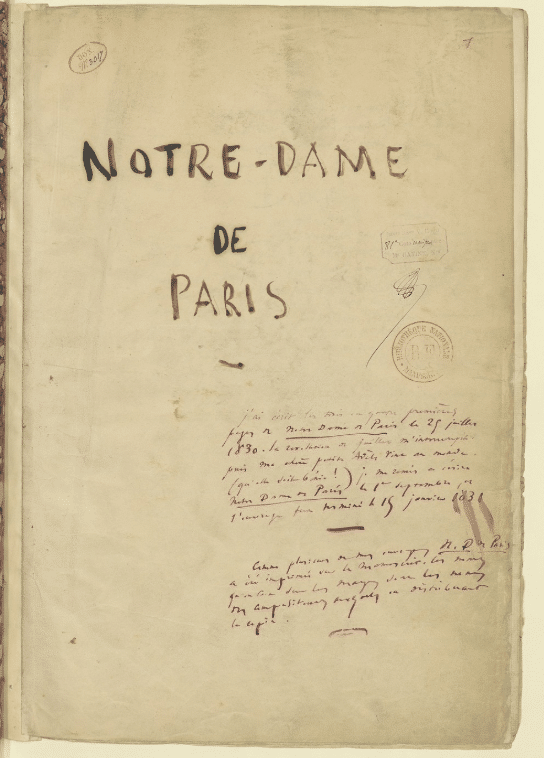 DON
N° 3017
NOTRE-DAME
DE
PARIS
BIBLIOTHÈQUE NATIONALE
MANUSCRITS
J'ai écrit les trois ou quatre premières
pages de Notre Dame de Paris le 25 juillet
1830. la révolution de juillet m'interrompit.
puis ma chère petite Adèle vint au monde
(qu'elle soit bénie!) je me remis à écrire
Notre Dame de Paris le 1er septembre, et
l'ouvrage fut terminé le 15 janvier 1831
Comme plusieurs de mes ouvrages, N. D. de Paris
a été imprimé sur le Manuscrit. les noms
qu'on lit dans les marges sont les noms
des compositeurs auxquels on distribuait
la copie.